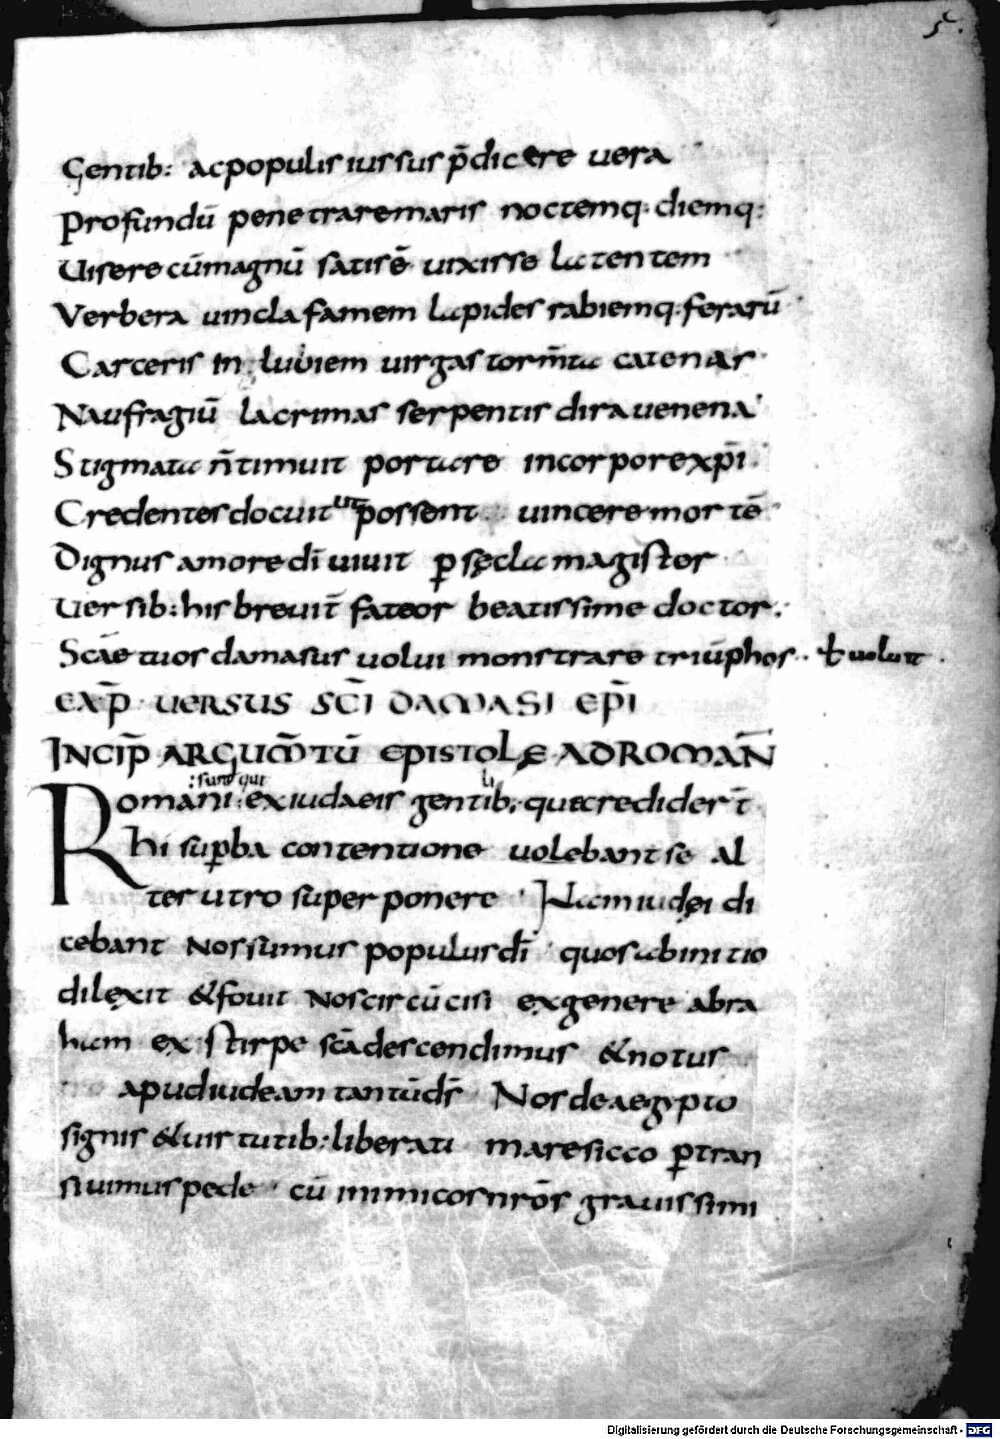 5.
Gentib: ac populis iussus p̄dicere uera
Profundū penetrare maris noctemq: diemq:
Uisere cū magnū satis ē uixisse latentem
Verbera uincla famem lapides rabiemq: ferarū
Carceris inluuiem uirgas torm̄ta catenas
Naufragiū lacrimas serpentis dira uenena
Stigmata n̄ timuit portare in corpore xp̄i
Credentes docuit ut possent uincere mortē
Dignus amore dī uiuit ꝑ sęcla magister
Uersib: his breuit̄ fateor beatissime doctor.
Sc̄āe tuos damasus uolui monstrare triūphos.. ɫ uoluit.
EXP̄ UERSUS SC̄I DAMASI EP̄I
INCIP̄ ARGUM̄TŪ EPISTOLĘ AD ROMAN̄
:sunt qui
Romani: ex iudaeis gentib; que credider̄t
hi suꝑba contentione uolebant se al
ter utro super ponere Nam iudęi di
cebant nos sumus populus dī quos ab initio
dilexit & fouit nos circūcisi ex genere abra
ham ex stirpe sc̄ā descendimus & notus
apud iudeam tantū ds̄ Nos de aegypto
signis & uirtutib: liberati mare sicco ꝑtran
siuimus pede cū inimicos nr̄ōs grauissimi
Digitalisierung gefördert durch die Deutsche Forschungsgemeinschaft - DFG